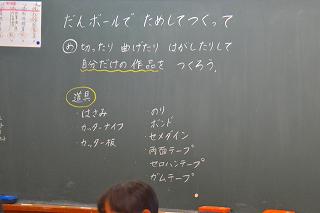 だんボールで ためしてつくって
め 切ったり 曲げたり はがしたりして
自分だけの作品を つくろう。
道具
・はさみ
・カッターナイフ
・カッター板
・のり
・ボンド
・セメダイン
・両面テープ
・セロハンテープ
・ガムテープ